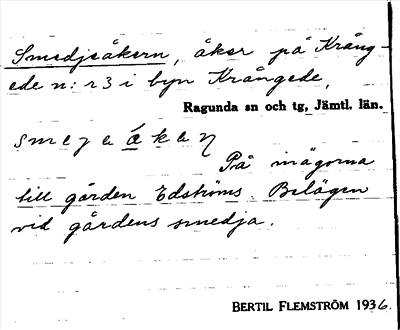 Smedjeåkern, åker på Krång-
ede n:r 3 i byn Krångede,
Ragunda sn och tg, Jämtl. län.
På inägorna
till gården Edströms. Belägen
vid gårdens smedja.
BERTIL FLEMSTRÖM 1936.